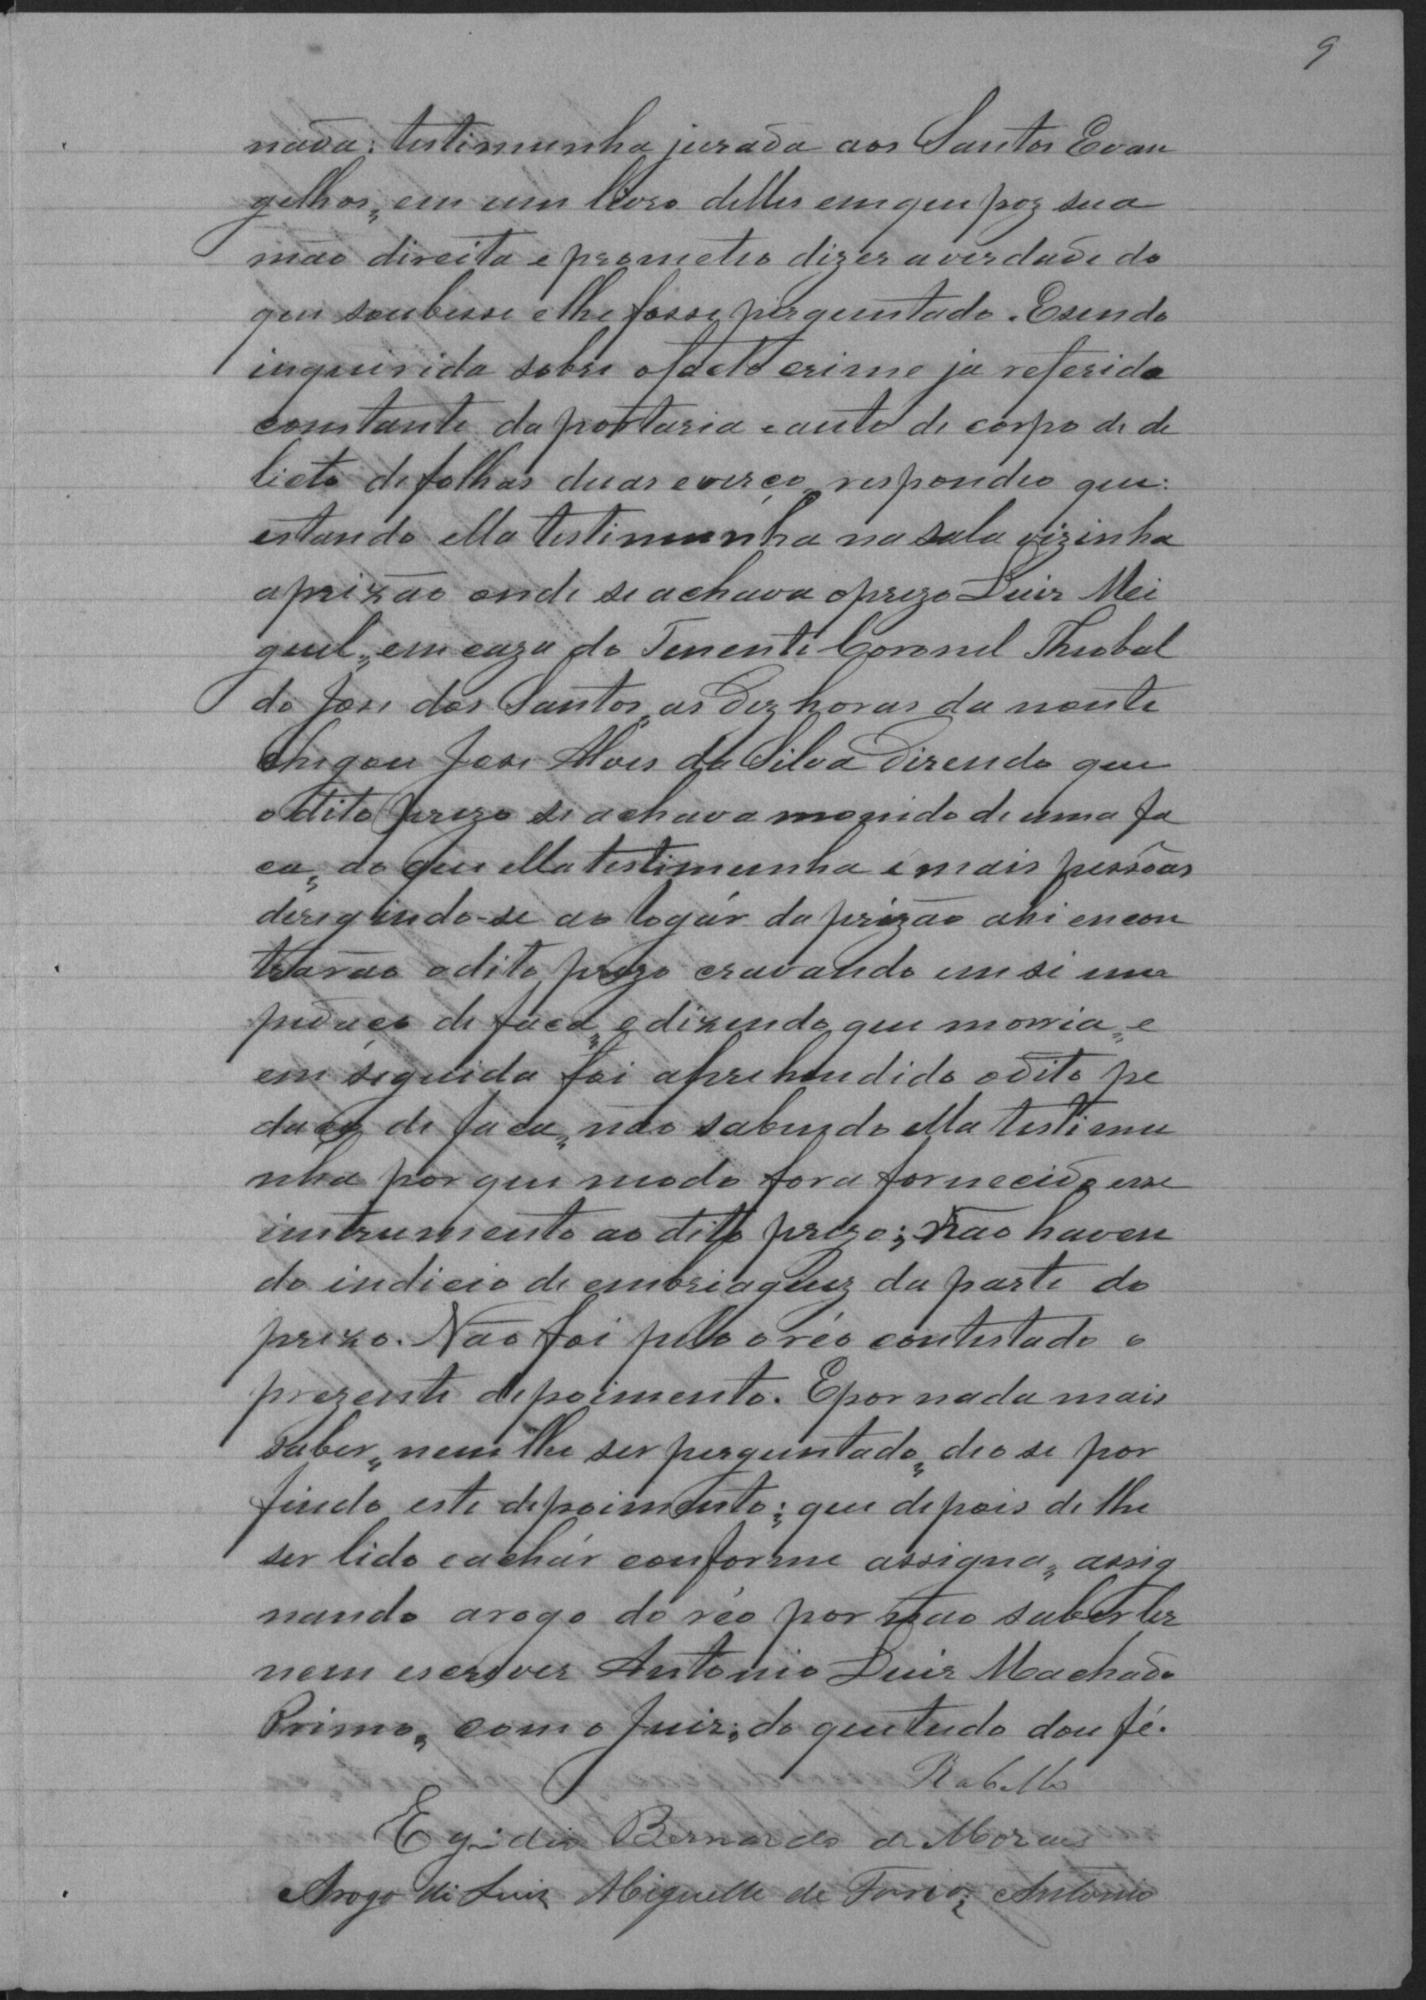 9
nada: testimunha jurada aos Santos Evan
gelhos, em um livro delles em que poz sua
mão direita e prometeo dizer a verdade do
que soubesse e lhe fosse perguntado. E sendo
inquirida sobre o facto crime ja referido
constante da portaria e auto de corpo de de
licto de folhas duas e verço, respondeo que:
estando ella testimunha na sala vizinha
a prizão onde se achava o prezo Luiz Mei
guel, em caza do Tenente Coronel Theobal
do José dos Santos, as dez horas da noute
chegou José Alves da Silva dizendo que
o dito prezo se achava monido de uma fa
ca, do que ella testimunha e mais pessôas
derigindo-se ao logár da prizão ahi encon
trarão o dito prezo cravando em si um
pedaço de faca, e dizendo que morria, e
em seguida foi aprehendido o dito pe
daço de faca, não sabendo ella testimu
nha por que modo fora fornecido esse
instrumento ao dito prezo; não haven
do indicio de embriaguez da parte do
prezo. Não foi pelo o réo contestado o
prezente depoimento. E por nada mais
saber, nem lhe ser perguntado, deo se por
findo este depoimento; que depois de lhe
ser lido e achár conforme assigna, assig
nando arogo do réo por não saber ler
nem escrever Antonio Luiz Machado
Primo, com o Juiz; do que tudo dou fé.
Rabello
Egidio Bernardo de Moraes
Arogo di Luiz Miguelle de Antonio